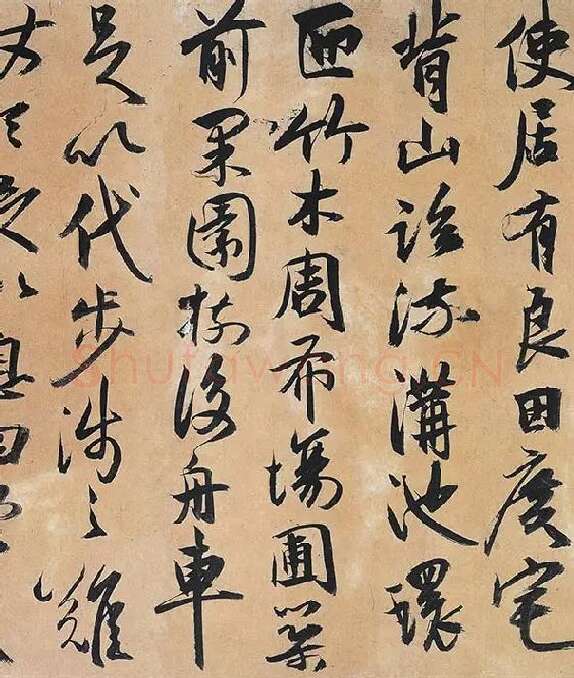 使居有良田廣宅
背山臨流溝池環
匝竹木周布場圃築
前果園樹後舟車
足以代步涉之難
令足以息四
Shufawang.CN